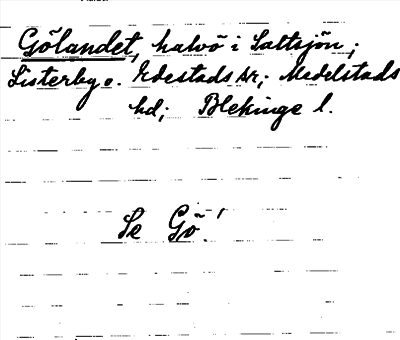 Gölandet, halvö i Saltsjön;
Listerby o. Edestads snr; Medelstads
hd; Blekinge l.
Se Gö!